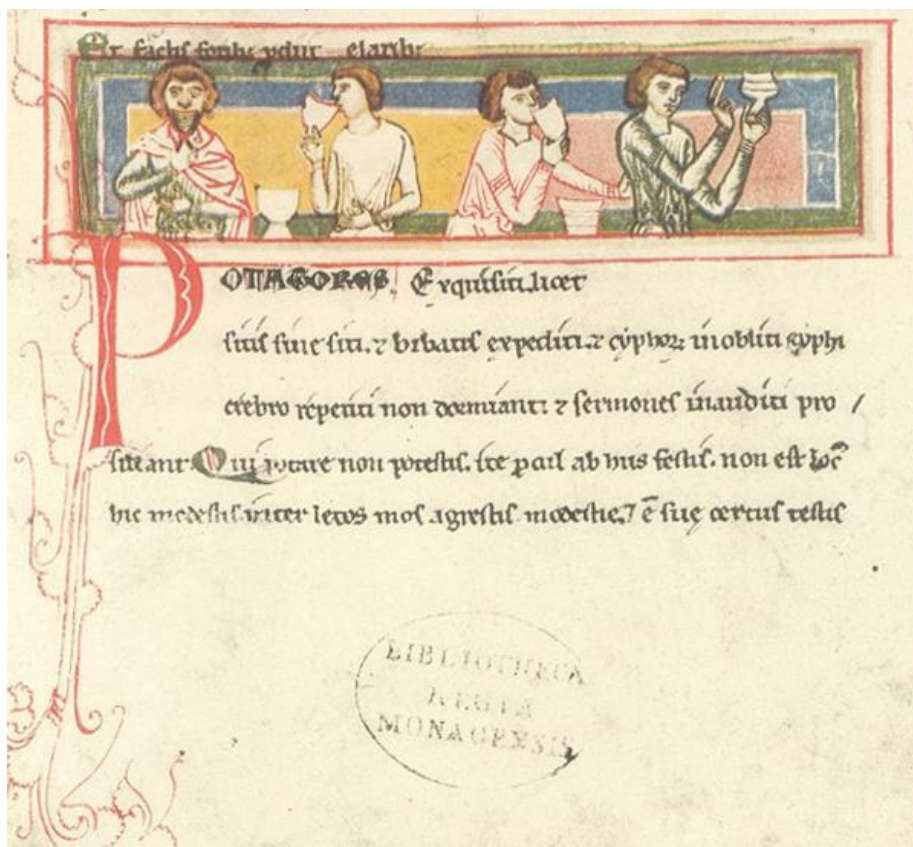 POTATORES Exquisiti. licet
sitis sine siti. ⁊ bibatis expediti. ⁊ cyphoꝝ inobliti cyphi
crebro repetiti non dormiant: ⁊ sermones inauditi pro
siliant. Qui potare non potestis. ite procul ab his festis. non est loc̄
hic modestis. inter letos mos agrestis modestie, ⁊ ē sue certus testis
BIBLIOTHECA
REGIA
MONACENSIS